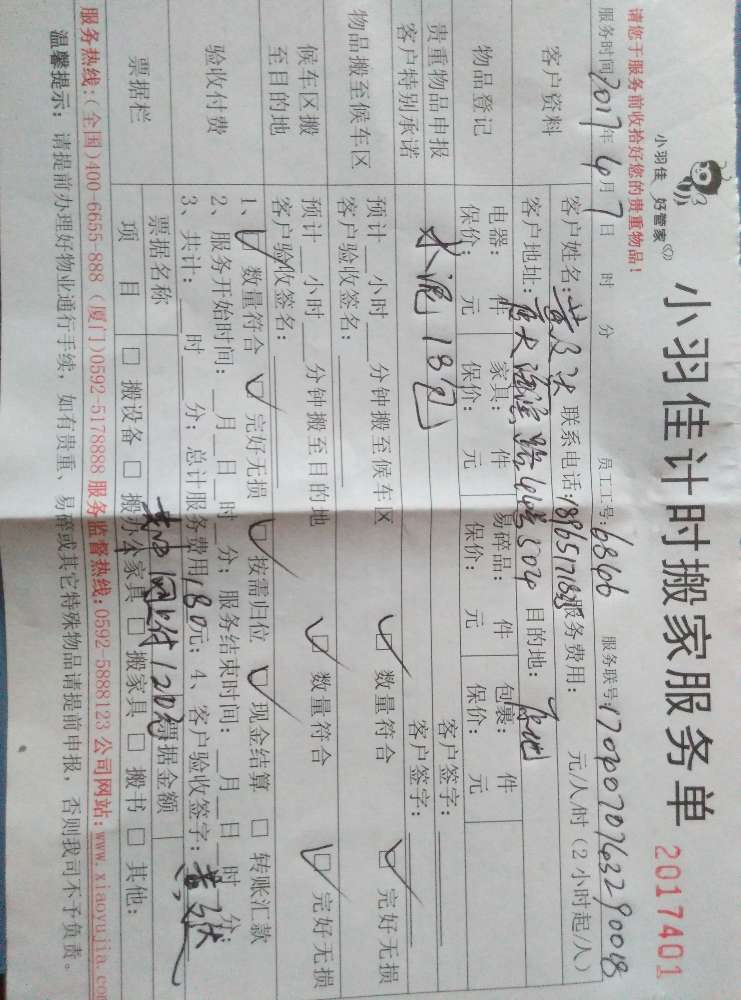 小羽佳 好管家
小羽佳计时搬家服务单
2017401
请您于服务前收拾好您的贵重物品!
员工工号:6846 服务联号:
服务时间:2017年6月7日 时 分
客户资料
客户姓名: 联系电话: 服务费用: 元/人/时(2小时起/人)
客户地址: 目的地:
物品登记
电器: 件 家具: 件 易碎品: 件 包裹: 件
保价: 元 保价: 元 保价: 元 保价: 元
贵重物品申报
水泥18包
客户签字:
客户特别承诺
客户签字:
物品搬至候车区
预计 小时 分钟搬至候车区 数量符合 完好无损
客户验收签名:
候车区搬至目的地
预计 小时 分钟搬至目的地 数量符合 完好无损
客户验收签名:
验收付费
1、 数量符合 完好无损 按需归位 现金结算 □ 转账汇款
2、服务开始时间: 月 日 时 分; 服务结束时间: 月 日 时 分;
3、共计: 时 分; 总计服务费用180元; 4、客户验收签字:
票据栏
票据名称 网上付120元 票据金额
项目 □ 搬设备 □ 搬办公家具 □ 搬家具 □ 搬书 □ 其他:
服务热线:(全国)400-6655-888 (厦门)0592-5178888 服务监督热线:0592-5888123 公司网站:www.xiaoyujia.com
温馨提示: 请提前办理好物业通行手续, 如有贵重、易碎或其它特殊物品请提前申报, 否则我司不予负责。